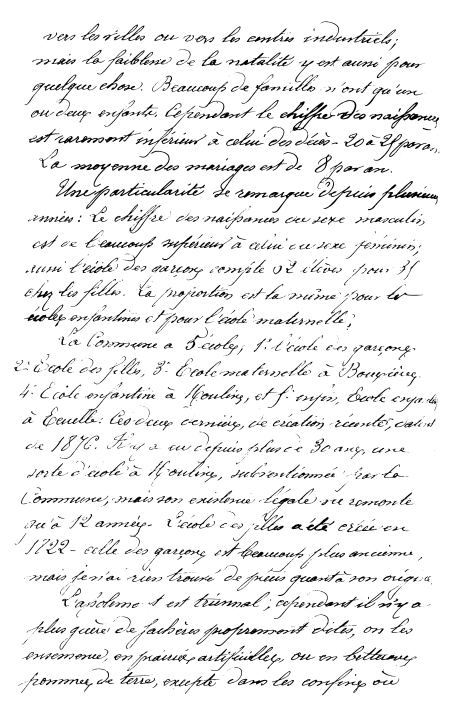 vers les villes ou vers les centres industriels;
mais la faiblesse de la natalité y est aussi pour
quelque chose. Beaucoup de familles n'ont qu'un
ou deux enfants. Cependant le chiffre des naissances
est rarement inférieur à celui des décès - 20 à 25 par an.
La moyenne des mariages est de 8 par an.
Une particularité se remarque depuis plusieurs
années: Le chiffre des naissances du sexe masculin
est de beaucoup supérieur à celui du sexe féminin;
aussi l'école des garçons compte 52 élèves pour 35
chez les filles. La proportion est la même pour les
écoles enfantines et pour l'école maternelle;
La Commune a 5 écoles; 1° l'école des garçons
2° Ecole des filles, 3° Ecole maternelle à
4° Ecole enfantine à Moulins, et 5° enfin, Ecole enfantine
à Ces deux dernières, de création récente, datent
de 1876. Il y a eu depuis plus de 30 ans, une
sorte d'école à Moulins, subventionnée par la
Commune, mais son existence légale ne remonte
qu'à 12 années - L'école des filles a été créée en
1722 - celle des garçons est beaucoup plus ancienne,
mais je n'ai rien trouvé de précis quant à son origine.
L'assolement est triennal; cependant il n'y a
plus guère de jachères proprement dites, on les
ensemence, en prairies artificielles ou en betteraves
pommes de terre, excepté dans les confins où